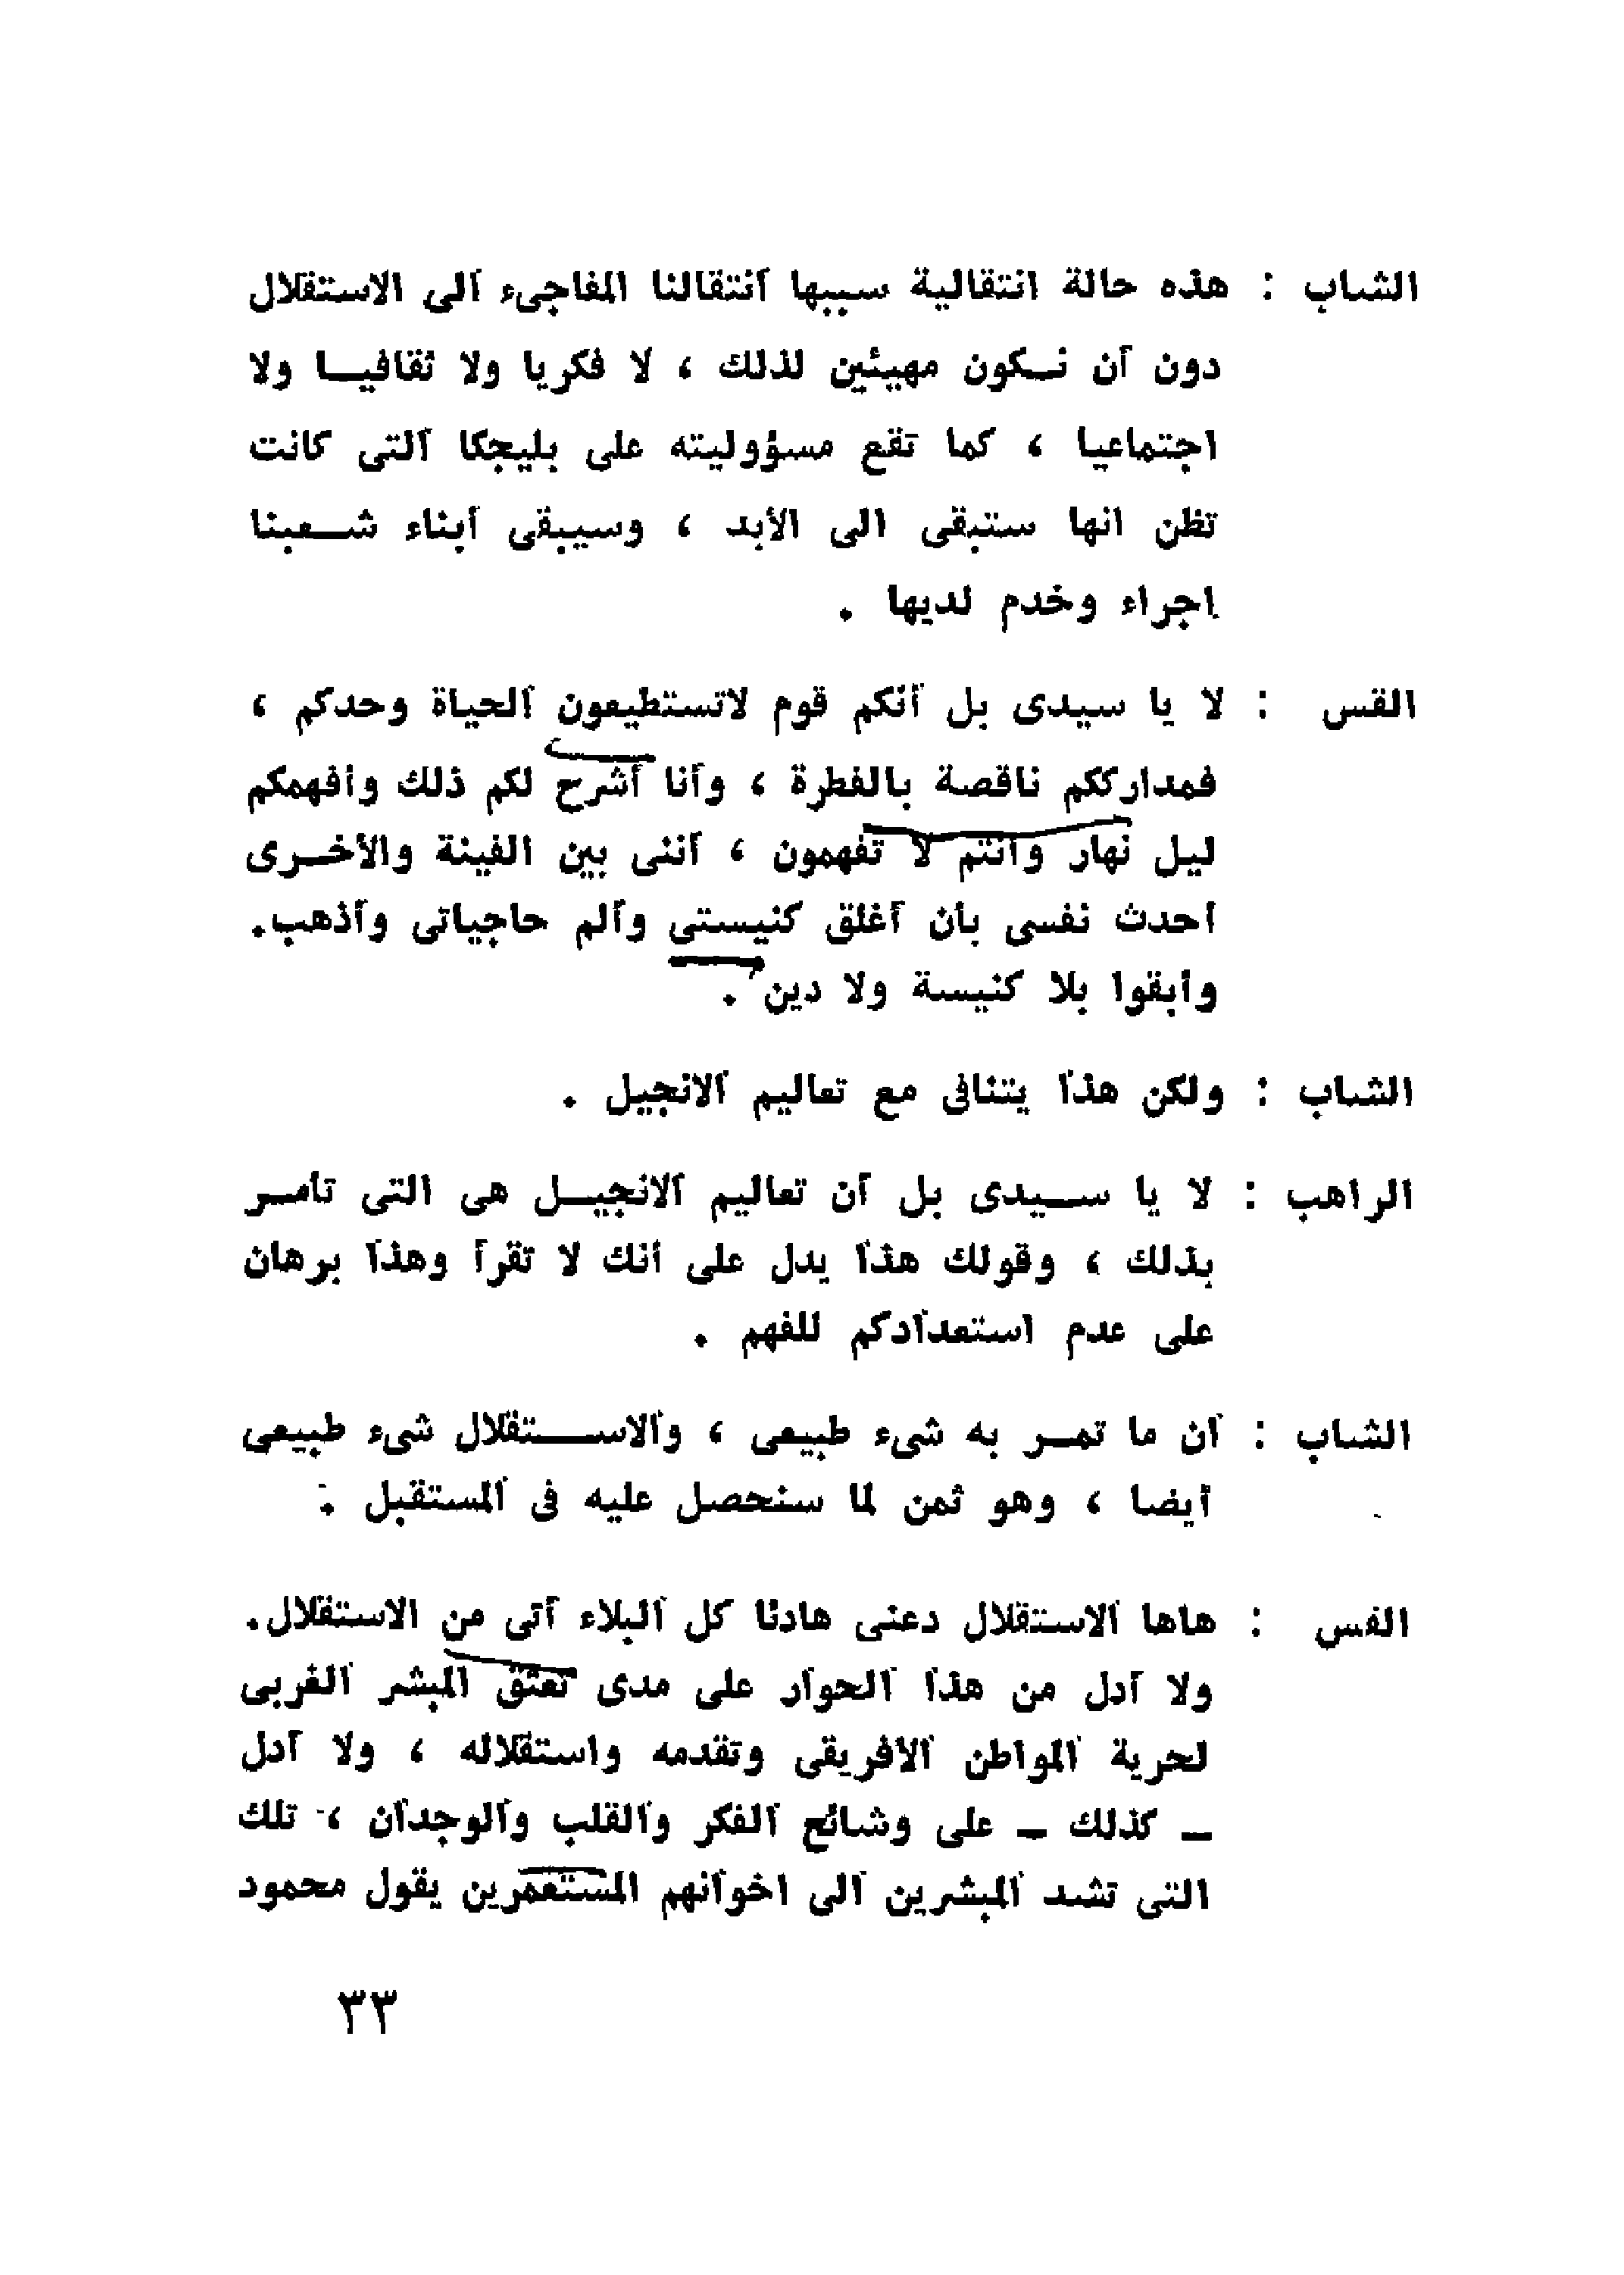 الشاب : هذه حالة انتقالية سببها انتقالنا المفاجىء الى الاستقلال
دون أن نـكون مهيئين لذلك ، لا فكريا ولا ثقافيـا ولا
اجتماعيا ، كما تقع مسؤوليته على بليجكا التى كانت
تظن انها ستبقى الى الأبد ، وسيبقى أبناء شـعبنا
اجراء وخدم لديها .
القس : لا يا سيدى بل أنكم قوم لاتستطيعون الحياة وحدكم ،
فمدارككم ناقصة بالفطرة ، وأنا أشرح لكم ذلك وأفهمكم
ليل نهار وأنتم لا تفهمون ، أننى بين الفينة والأخـرى
أحدث نفسى بأن أغلق كنيستى وألم حاجياتى وأذهب.
وأبقوا بلا كنيسة ولا دين .
الشاب : ولكن هذا يتنافى مع تعاليم الانجيل .
الراهب : لا يا سـيدى بل أن تعاليم الانجيـل هى التى تأمـر
بذلك ، وقولك هذا يدل على أنك لا تقرأ وهذا برهان
على عدم استعدادكم للفهم .
الشاب : أن ما تمـر به شىء طبيعى ، والاسـتقلال شىء طبيعى
أيضا ، وهو ثمن لما سنحصل عليه فى المستقبل .
القس : هاها الاستقلال دعنى هادئا كل البلاء أتى من الاستقلال.
ولا أدل من هذا الحوار على مدى تعشق المبشر الغربى
لحرية المواطن الافريقى وتقدمه واستقلاله ، ولا أدل
ـ كذلك ـ على وشائج الفكر والقلب والوجدان ، تلك
التى تشد المبشرين الى اخوانهم المستعمرين يقول محمود
٣٣